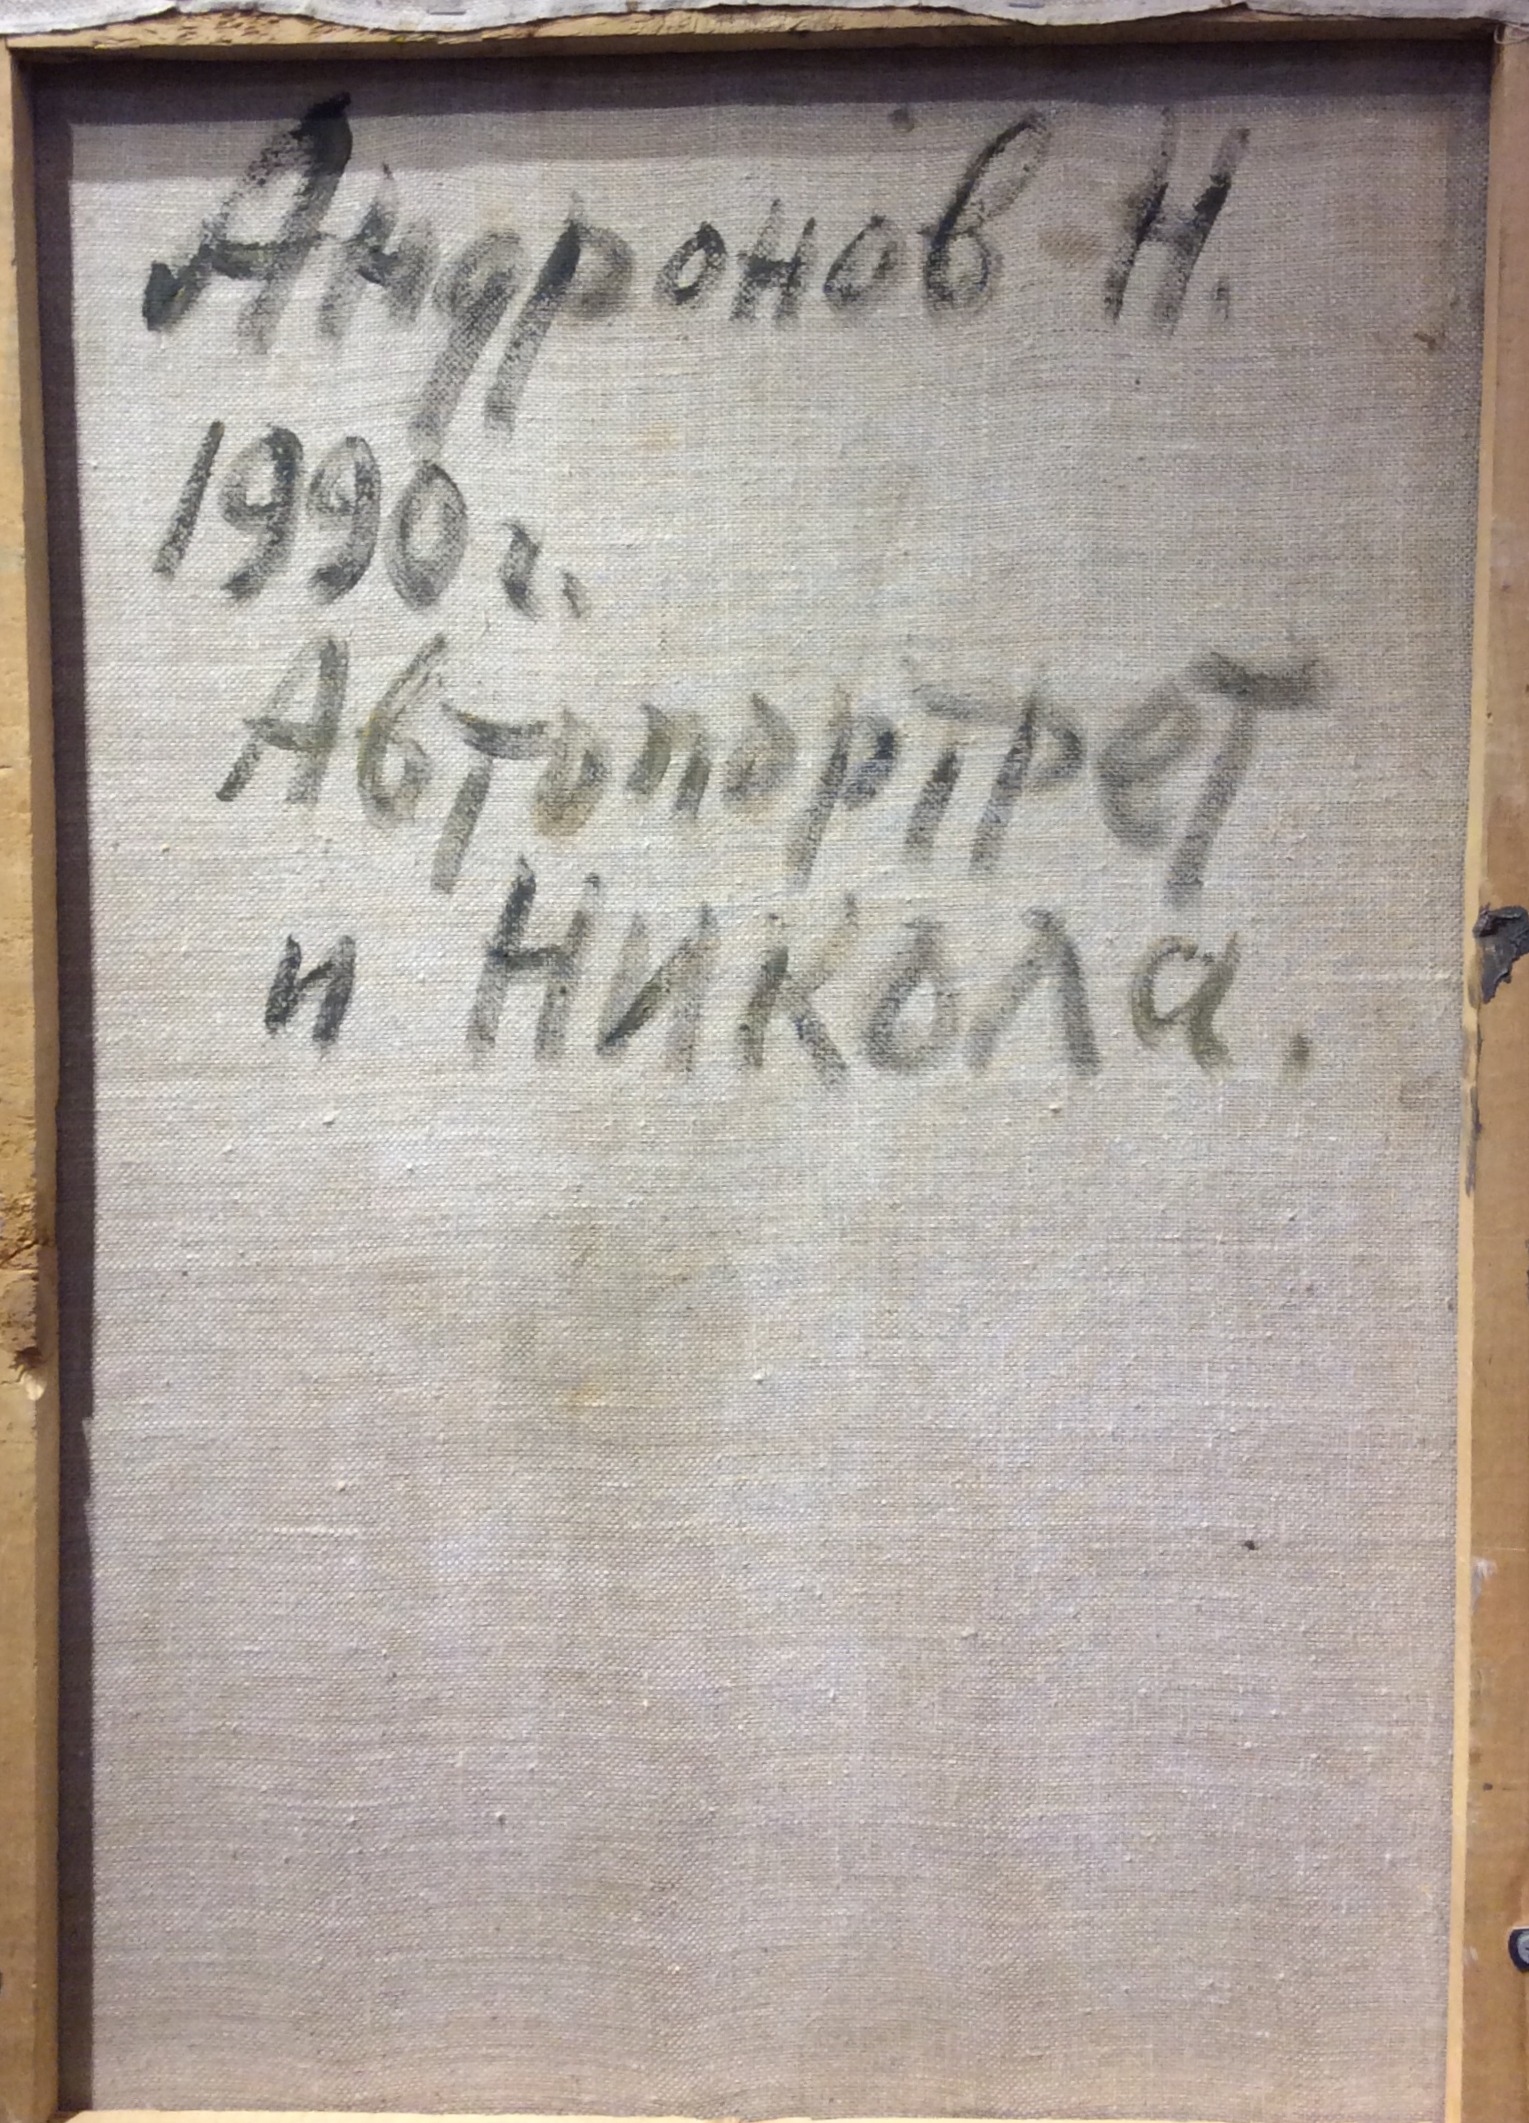 Андронов Н.
1990 г.
Автопортрет
и Никола.